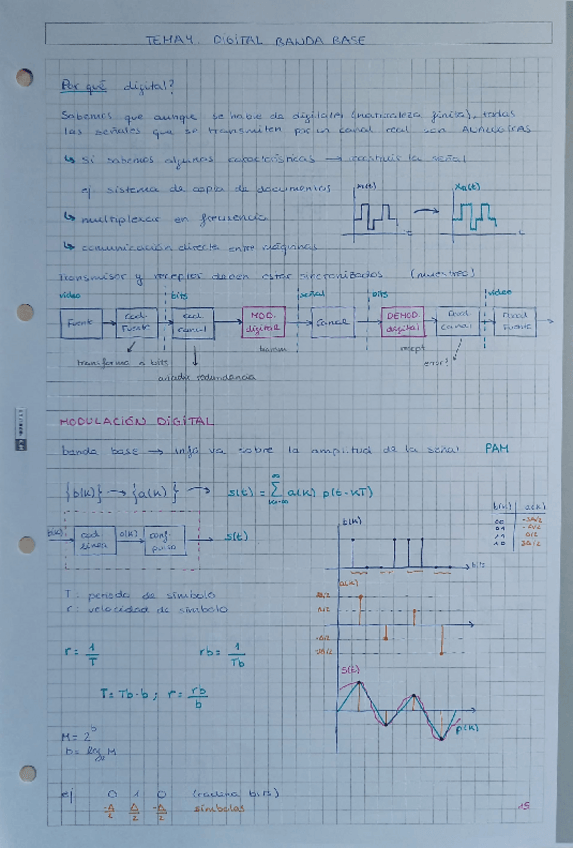 TEMA 4. DIGITAL BANDA BASE
Por qué digital?
Sabemos que aunque se hable de digitales (naturaleza finita), todas
las señales que se transmiten por un canal real son ANALÓGICAS
↳ Si sabemos algunas características → reconstruir la señal
ej sistema de copia de documentos
x(t) → xR(t)
t t
↳ multiplexar en frecuencia
↳ comunicación directa entre máquinas
Transmisor y receptor deben estar sincronizados (muestreo)
video bits señal bits video
Fuente
cod. Fuente
cod. canal
MOD. digital
canal
DEMOD. digital
Decod canal
Decod Fuente
transforma a bits
transm.
recept
error?
añadir redundancia
MODULACIÓN DIGITAL
banda base → info va sobre la amplitud de la señal PAM
{b(k)} → {a(k)} → s(t) = ∑ a(k) p(t-kT)
b(k) a(k)
00 -3A/2
01 -A/2
11 A/2
10 3A/2
b(k) cod. línea a(k) conf. pulso s(t)
b(k)
bits
a(k)
3A/2
A/2
-A/2
-3A/2
T: periodo de símbolo
r: velocidad de símbolo
r = 1/T rb = 1/Tb
T = Tb·b ; r = rb/b
s(t)
p(k)
M = 2^b
b = log₂ M
ej 0 1 0 (cadena bits)
-A/2 A/2 -A/2 símbolos
15